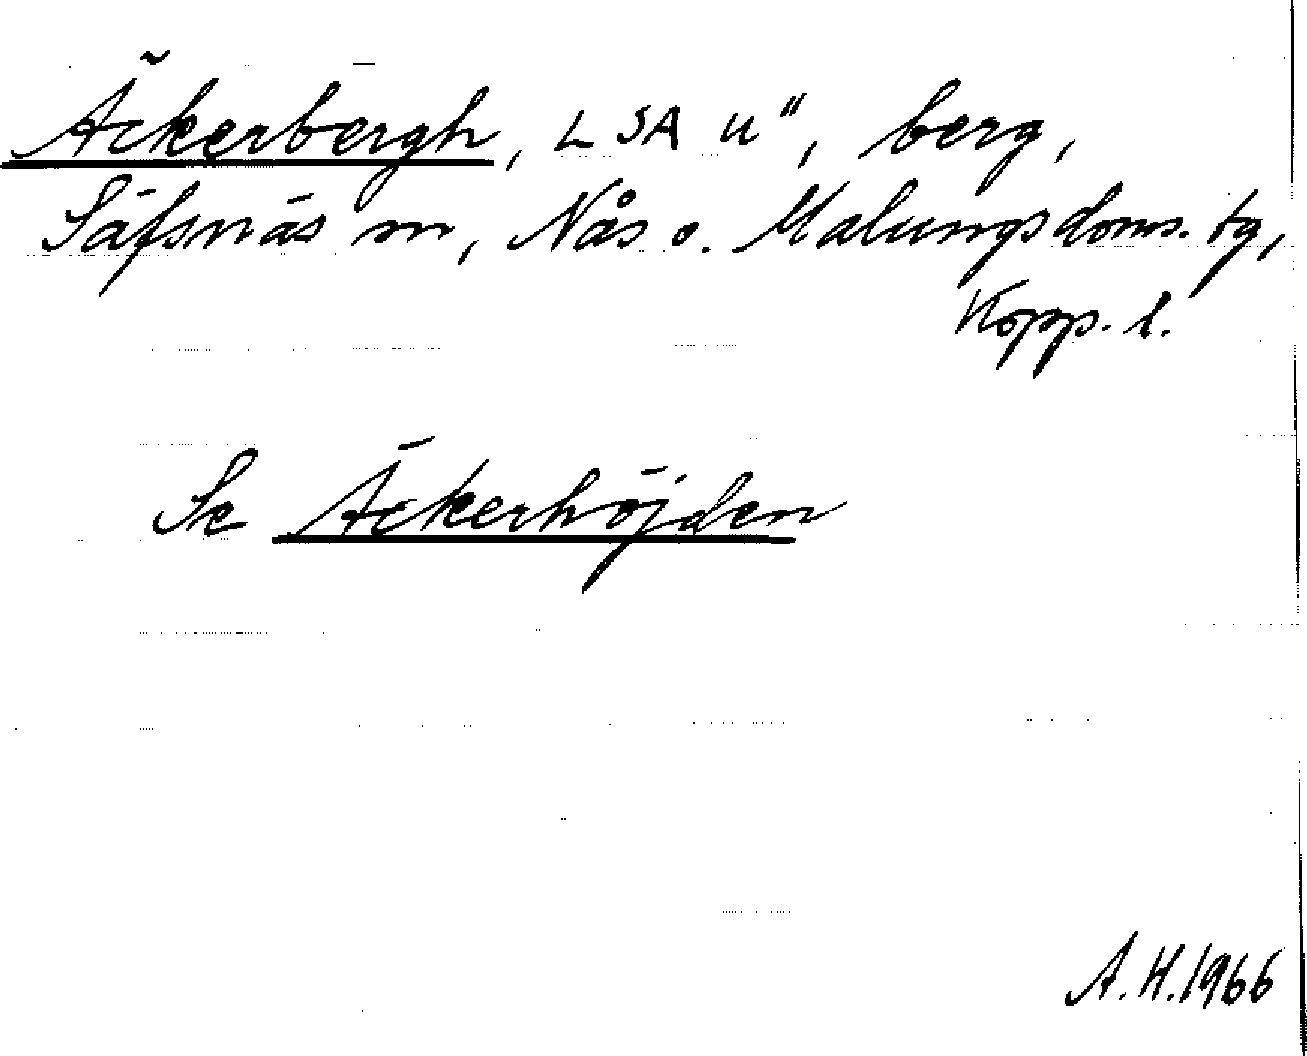 Äckerbergh, L SA U", berg,
Säfsnäs sn, Nås o. Malungs doms. tg,
Kopp. l.
Se Äckerhöjden
A.H. 1966